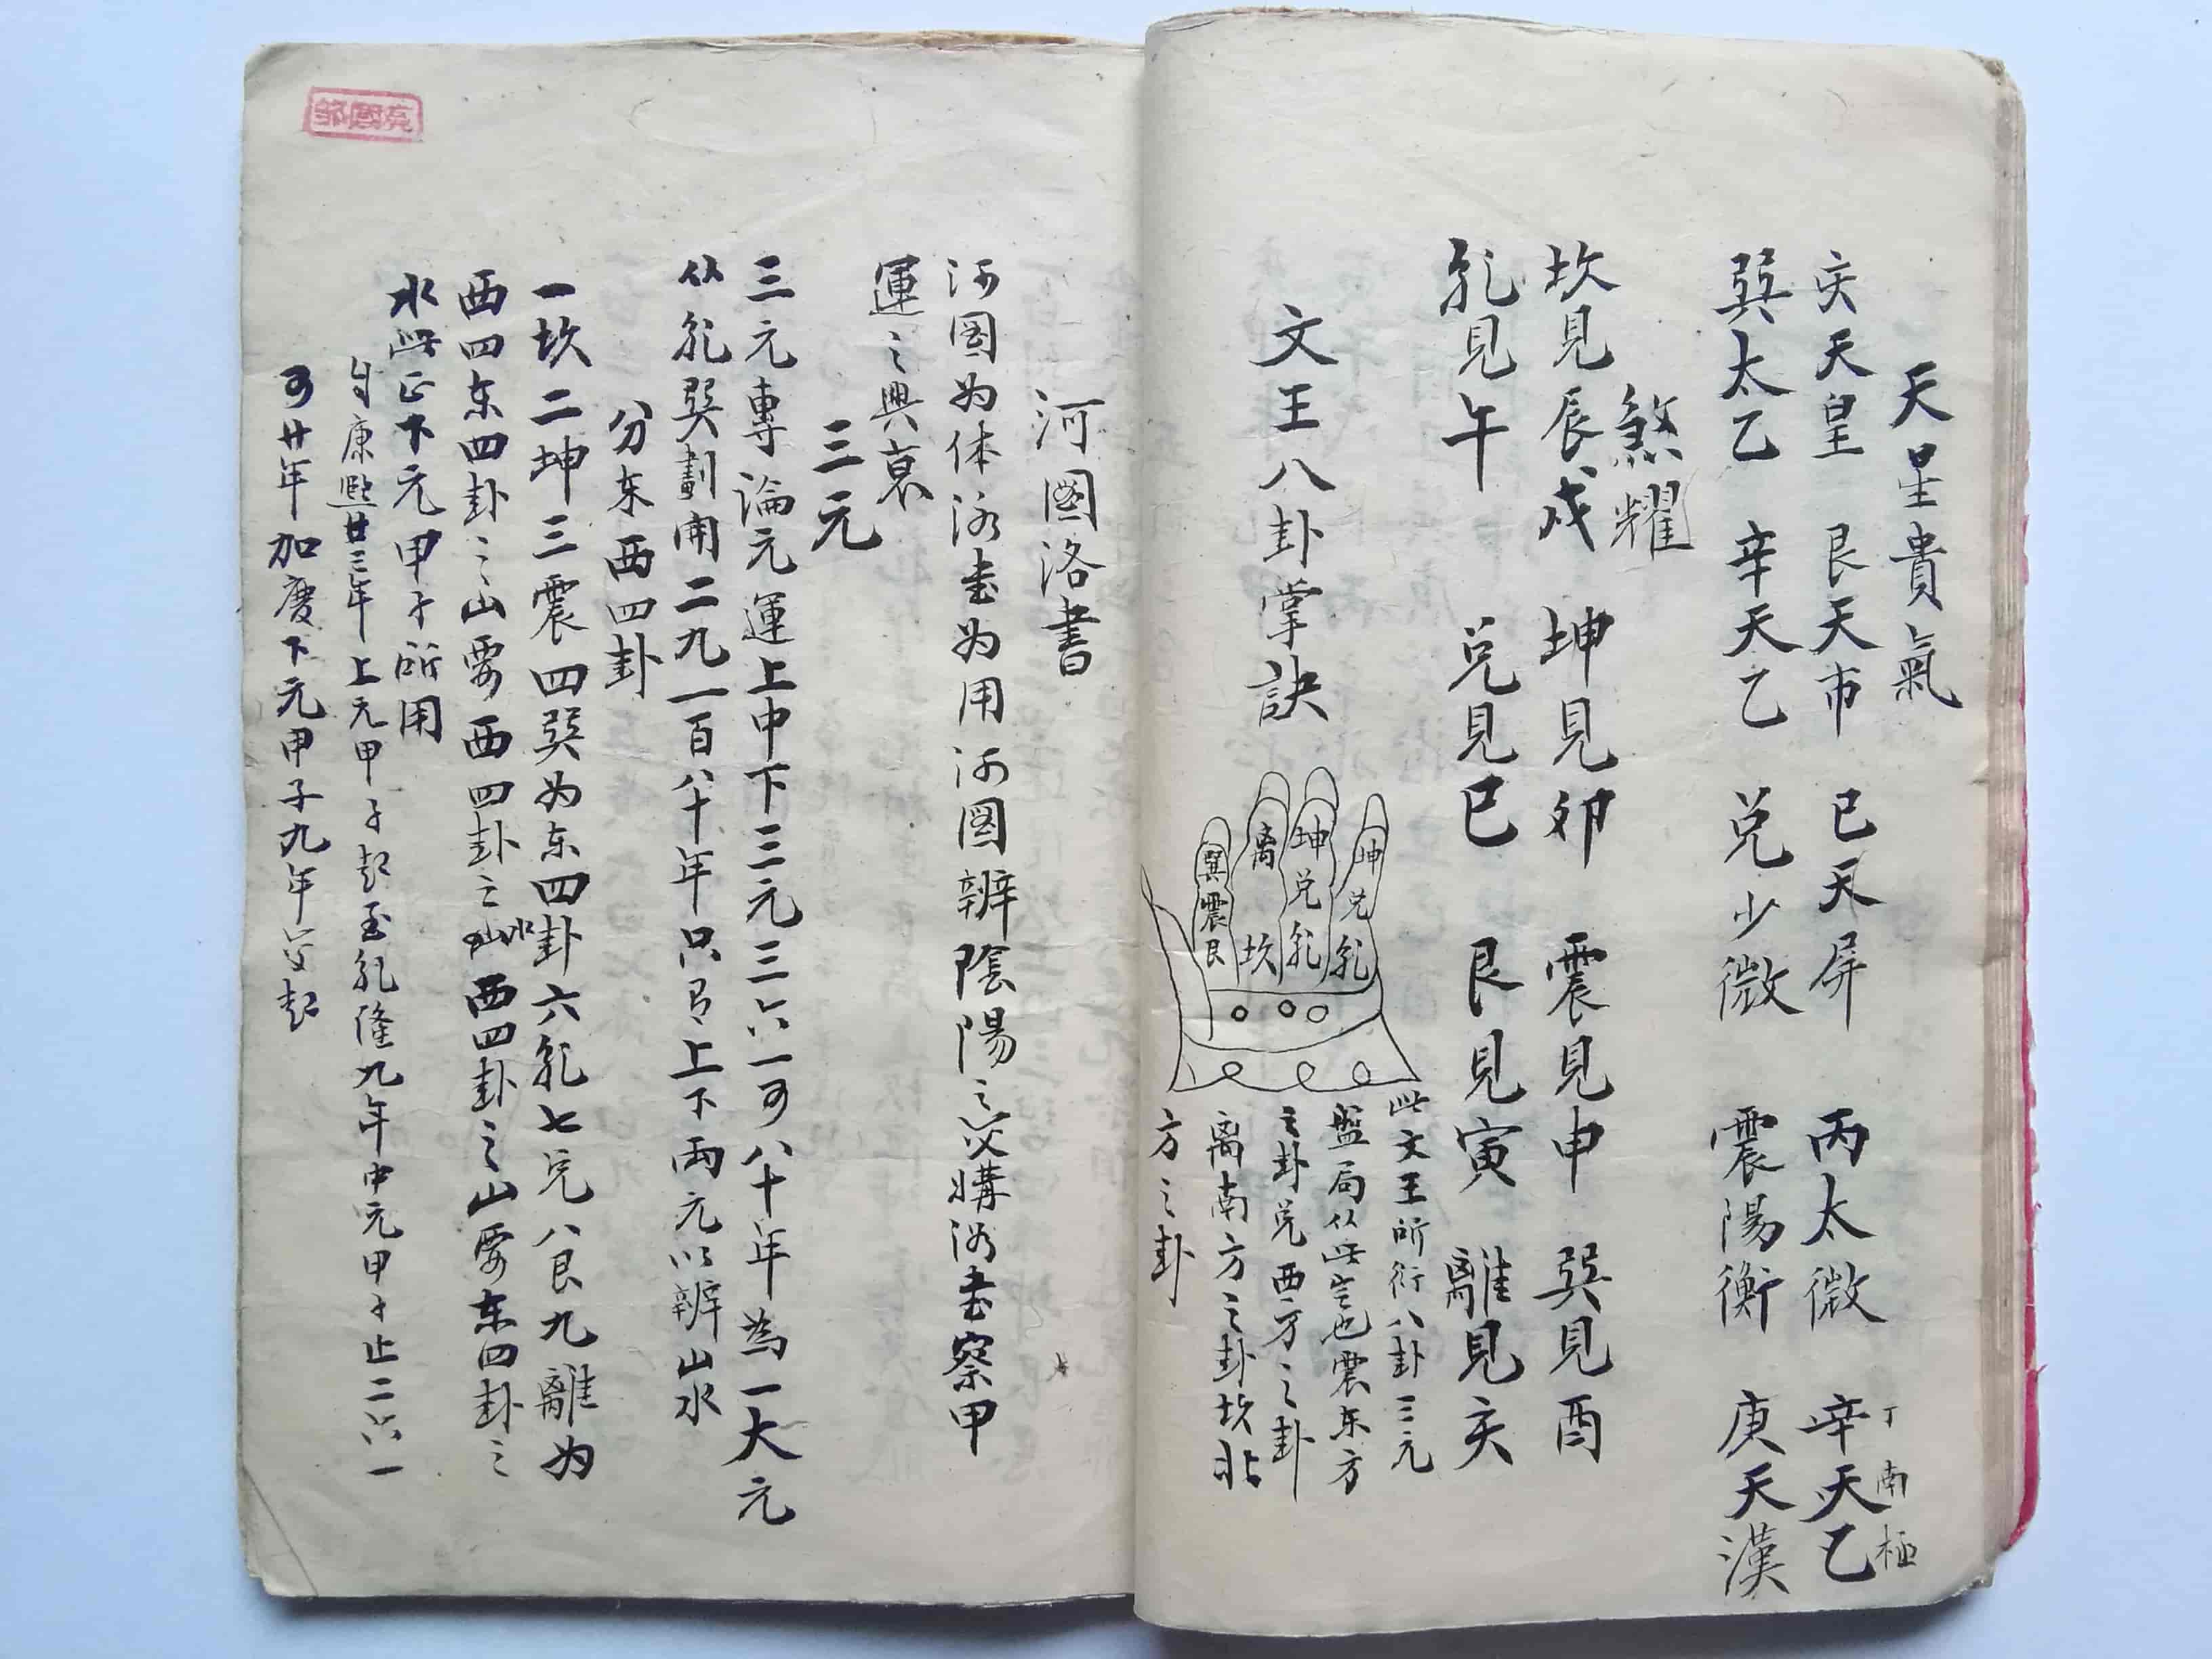 天星貴氣
亥天皇 艮天市 巳天屏 丙太微 辛天乙
丁南極
巽太乙 辛天乙 兌少微 震陽衡 庚天漢
煞耀
坎見辰戌 坤見卯 震見申 巽見酉
乾見午 兌見巳 艮見寅 離見亥
文王八卦掌訣
坤兑乾
坤兑乾
离坎
巽震艮
此文王所衍八卦三元
盤局从此定也震东方
之卦兑西方之卦
离南方之卦坎北
方之卦
河圖洛書
河图为体洛書为用河图辨陰陽之交媾洛書察甲
運之興衰
三元
三元專論元運上中下三元三六一百八十年為一大元
从乾巽劃開二九一百八十年只有上下兩元以辨山水
分东西四卦
一坎二坤三震四巽为东四卦六乾七兑八艮九離为
西四东四卦之山要西四卦之水西四卦之山要东四卦之
水此正下元甲子所用
自康熙廿三年上元甲子起至乾隆九年中元甲子止二六一
百廿年加慶下元甲子九年交起
鄒國亮